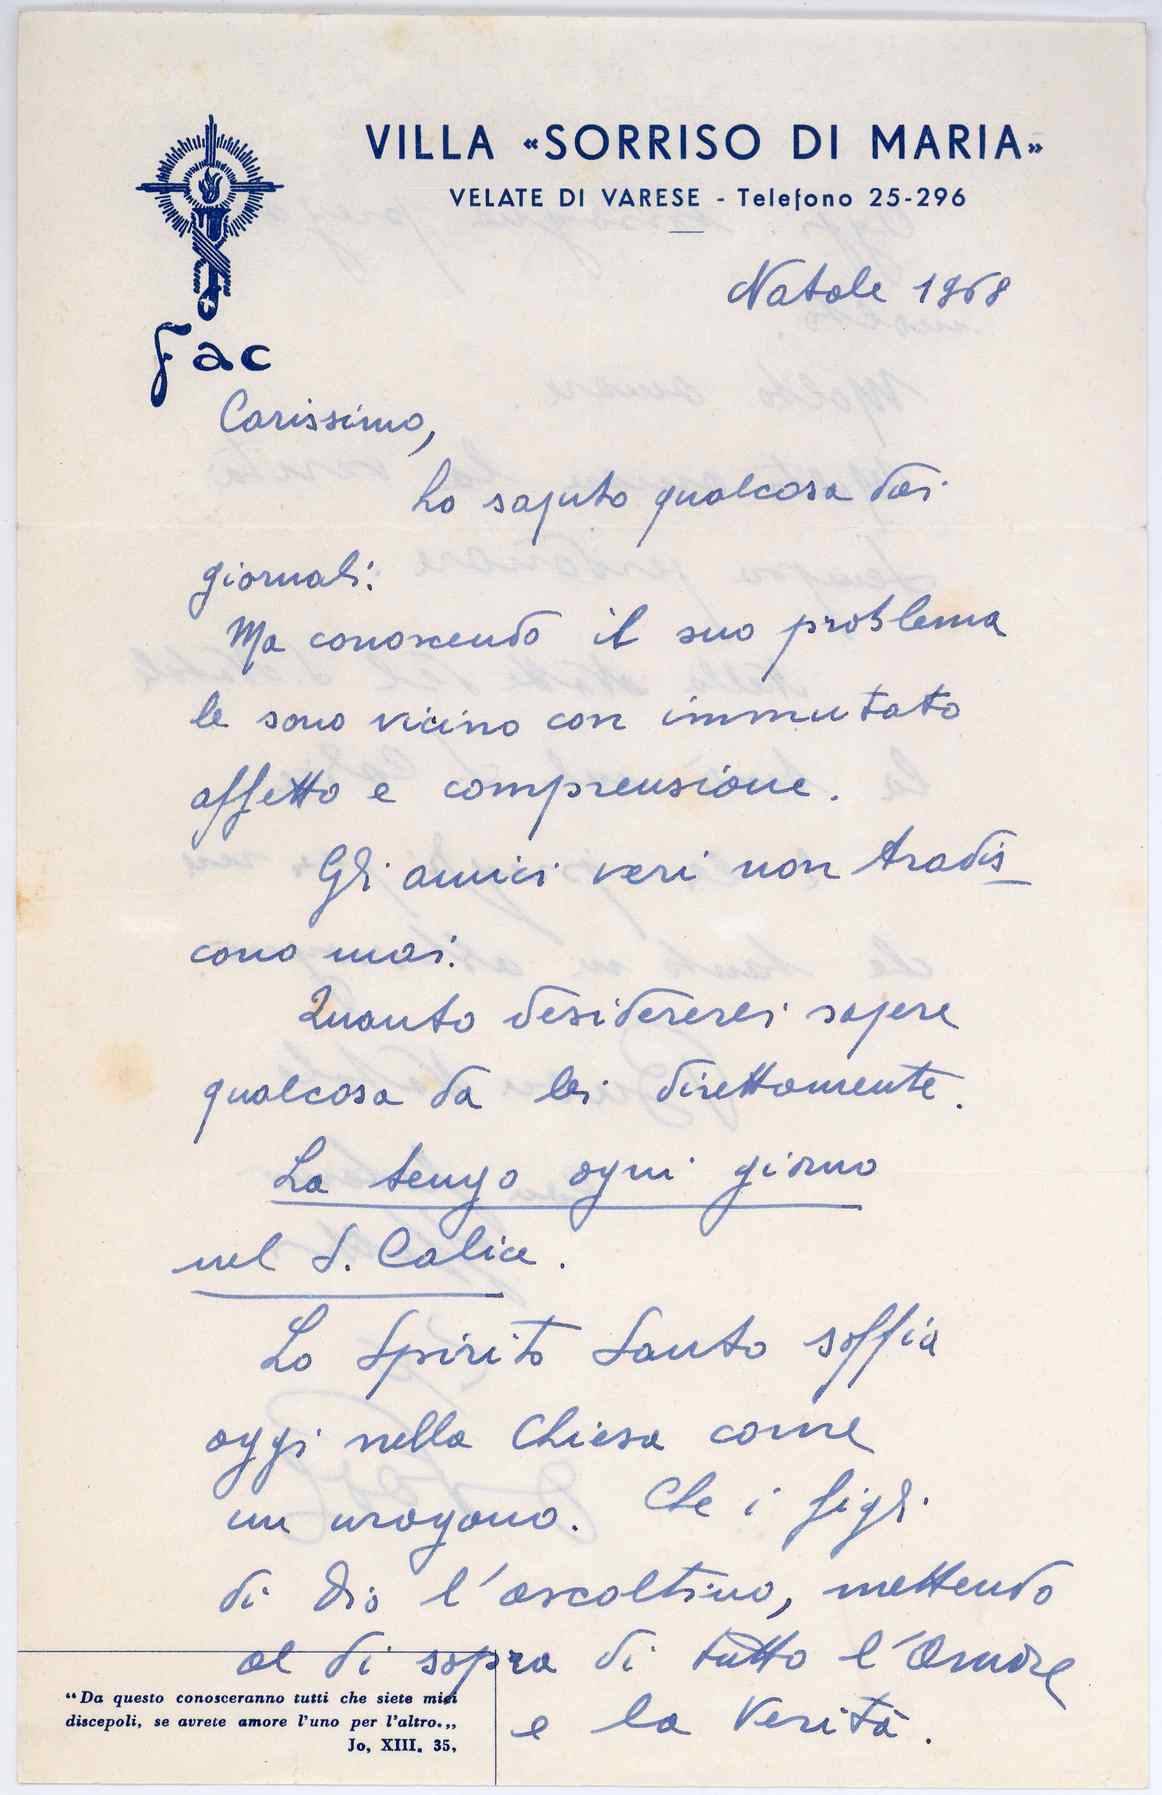 VILLA «SORRISO DI MARIA»
VELATE DI VARESE - Telefono 25-296
Fac
Natale 1968
Carissimo,
ho saputo qualcosa dai
giornali.
Ma conoscendo il suo problema
le sono vicino con immutato
affetto e comprensione.
Gli amici veri non tradis-
cono mai.
Quanto desidererei sapere
qualcosa da lei direttamente.
La tengo ogni giorno
nel S. Calice.
Lo Spirito Santo soffia
oggi nella Chiesa come
un uragano. Che i figli
di Dio l'ascoltino, mettendo
al di sopra di tutto l'Amore
e la Verità.
“Da questo conosceranno tutti che siete miei
discepoli, se avrete amore l'uno per l'altro.„
Jo, XIII. 35,